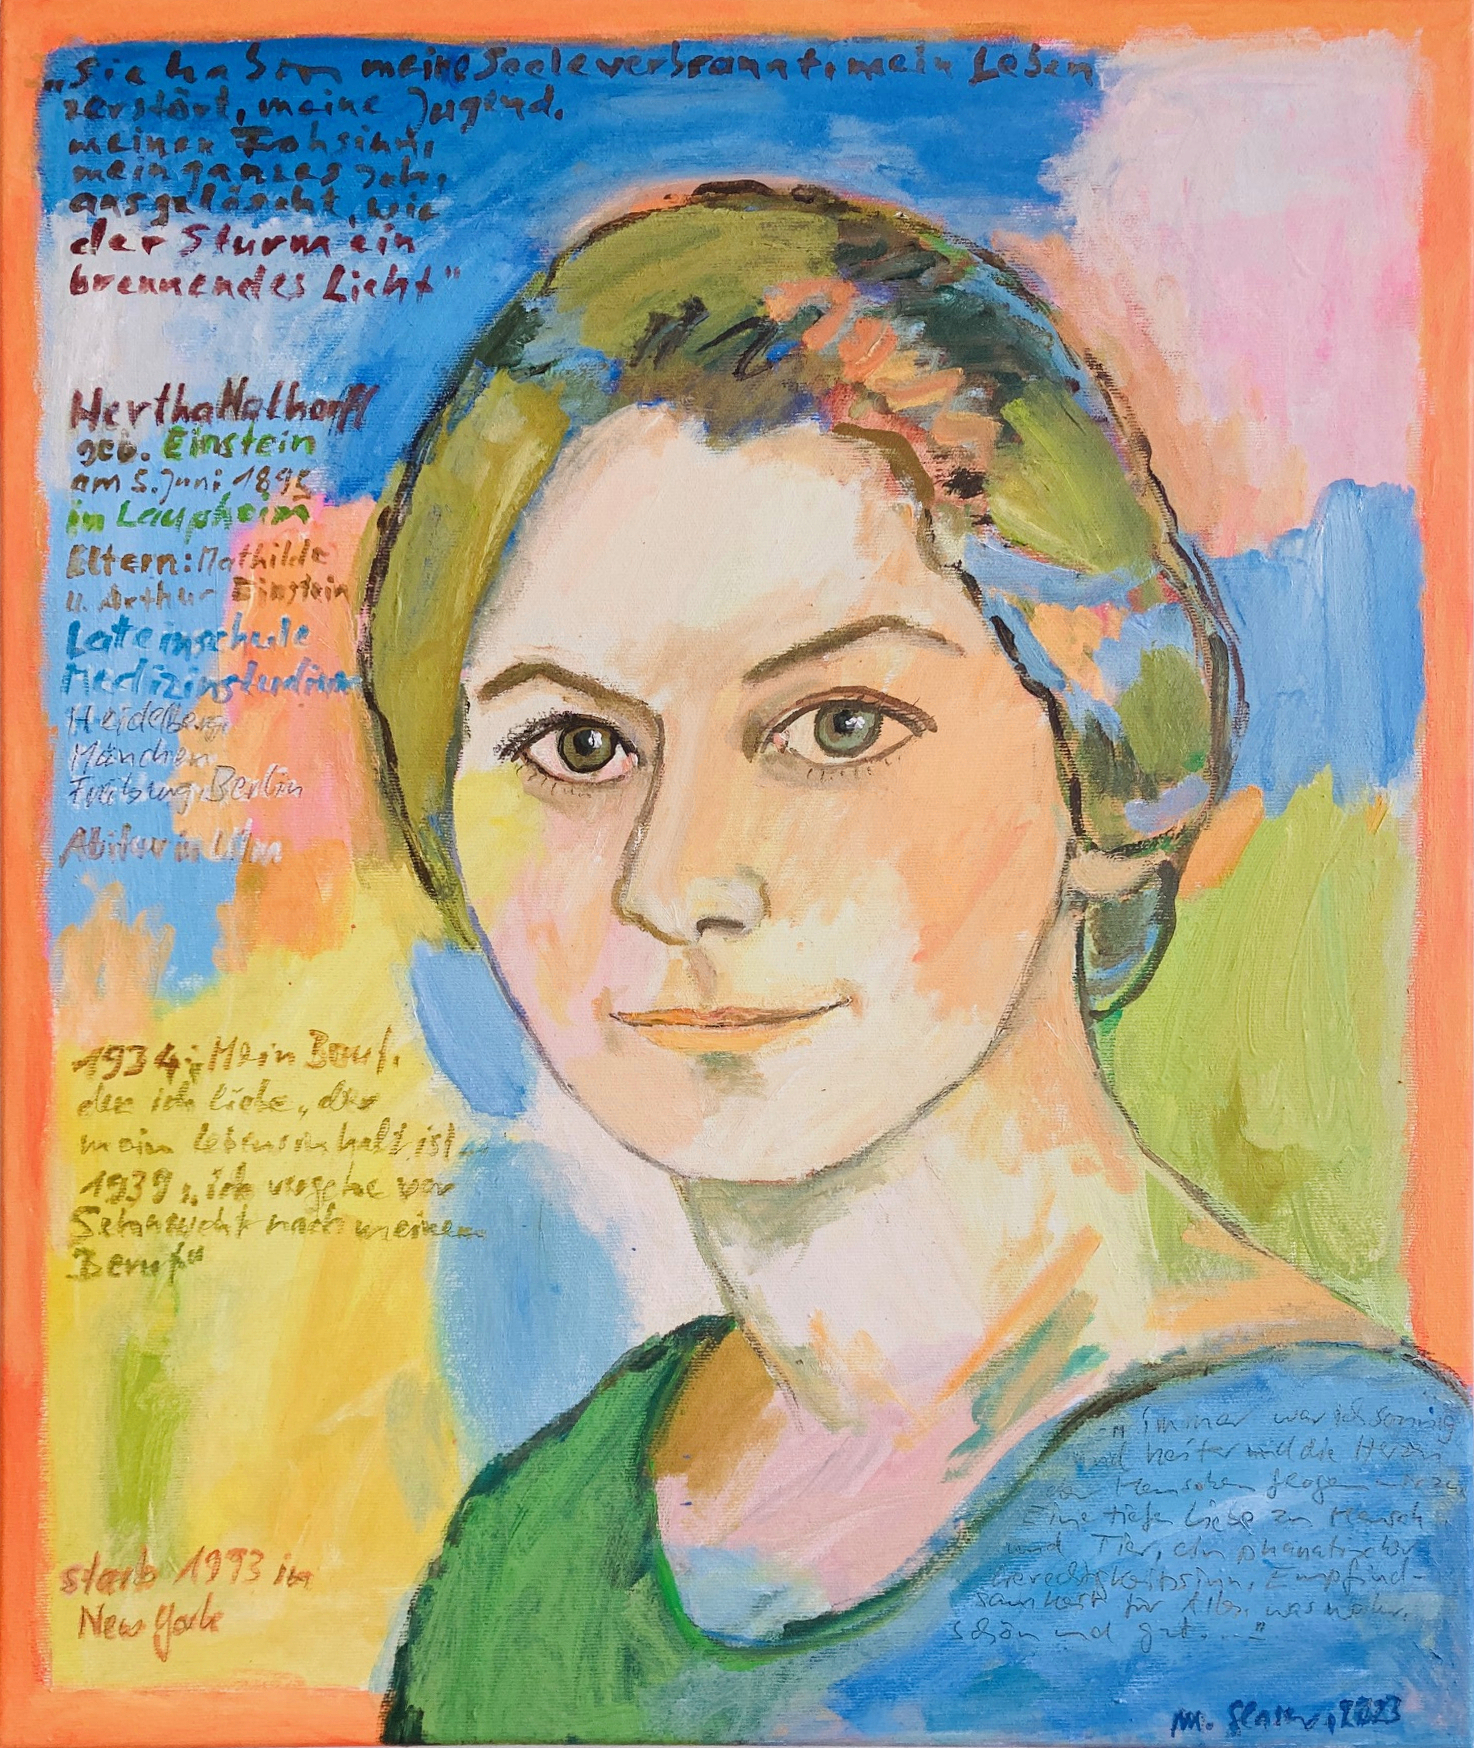 „Sie haben meine Seele verbrannt, mein Leben
zerstört, meine Jugend,
meinen Frohsinn,
mein ganzes Ich,
ausgelöscht, wie
der Sturm ein
brennendes Licht"
Hertha Nathorff
geb. Einstein
am 5. Juni 1895
in Laupheim
Eltern: Mathilde
u. Arthur Einstein
Lateinschule
Medizinstudium
Heidelberg,
München
Freiburg, Berlin
Abitur in Ulm
1934: Mein Beruf,
den ich liebe, der
mein Lebensinhalt ist
1939: „ich vergehe vor
Sehnsucht nach meinem
Beruf"
starb 1993 in
New York
„immer war ich sonnig
und heiter und die Herzen
der Menschen flogen mir zu
Eine tiefe Liebe zu Mensch
und Tier, ein phanatischer
Gerechtigkeitssinn, Empfind-
samkeit für Alles, was wahr,
schön und gut...."
M. 2023